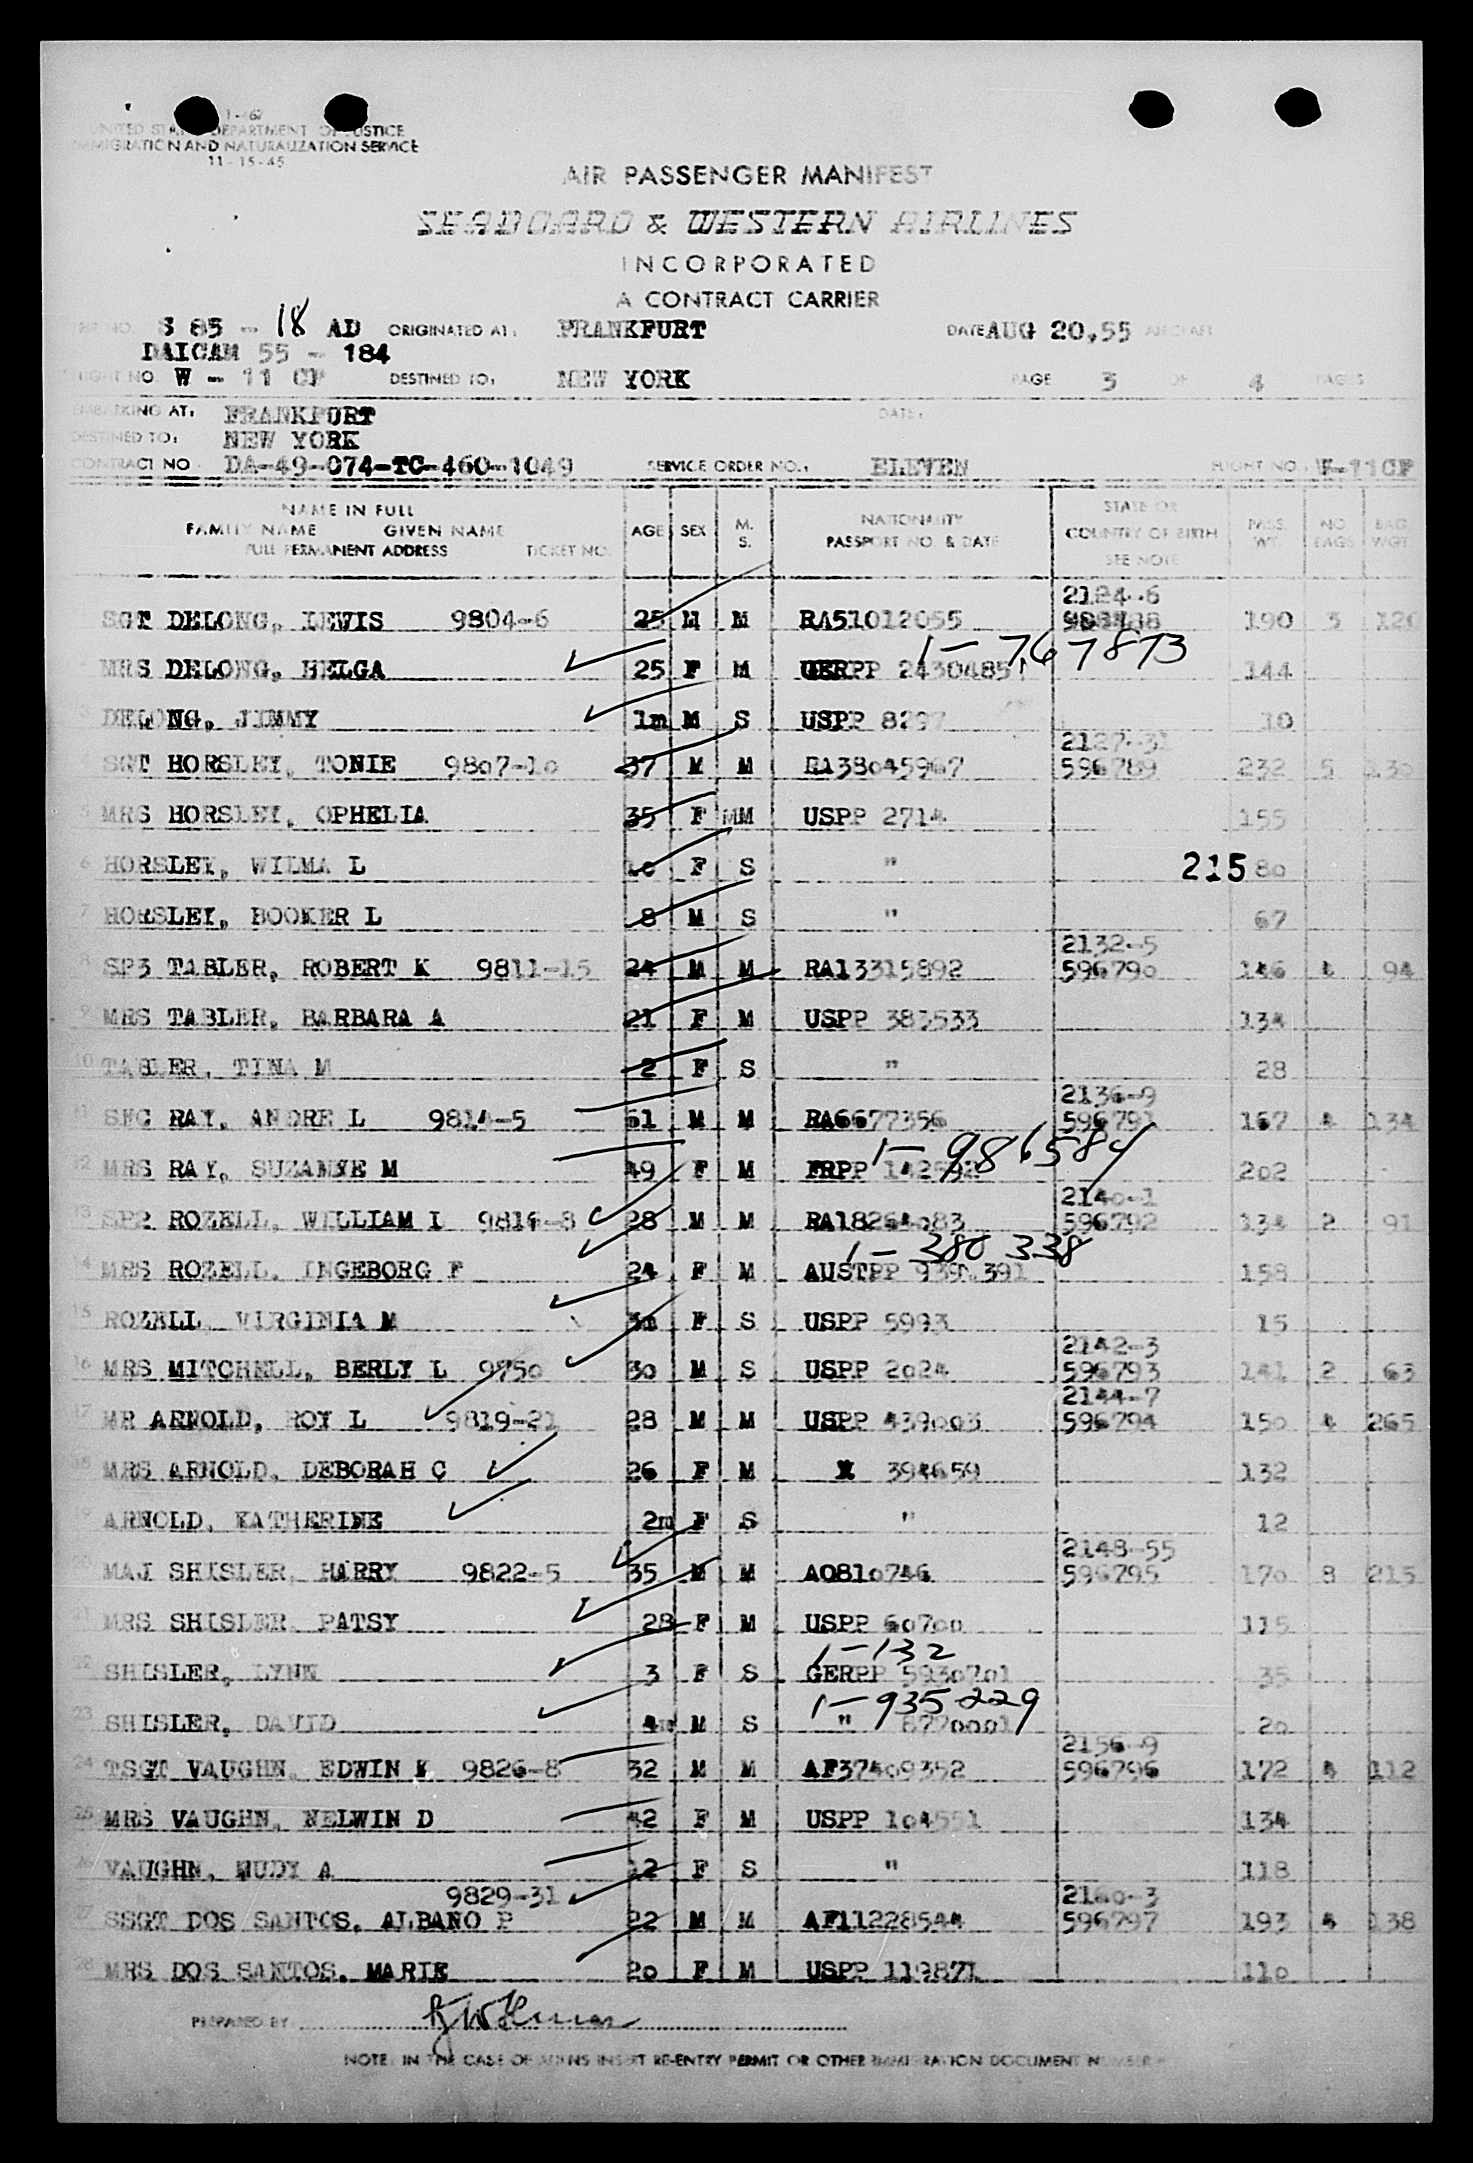 1-67
UNITED STATES DEPARTMENT OF JUSTICE
IMMIGRATION AND NATURALIZATION SERVICE
11-15-45
AIR PASSENGER MANIFEST
SEABOARD & WESTERN AIRLINES
INCORPORATED
A CONTRACT CARRIER
NO. S 85 - 18 AD ORIGINATED AT: FRANKFURT DATE AUG 20,55 AIRCRAFT
DAICAM 55 - 184
FLIGHT NO. W - 11 CF DESTINED TO: NEW YORK PAGE 3 OF 4 PAGES
EMBARKING AT: FRANKFURT DATE:
DESTINED TO: NEW YORK
CONTRACT NO. DA-49-074-TC-460-1049 SERVICE ORDER NO.: ELEVEN FLIGHT NO. W-11CF
NAME IN FULL
FAMILY NAME GIVEN NAME
FULL PERMANENT ADDRESS TICKET NO. AGE SEX M. S. NATIONALITY PASSPORT NO. & DATE STATE OR COUNTRY OF BIRTH SEE NOTE PASS. WT. NO. BAGS BAG. WGT.
2124-6
SGT DELONG, LEWIS 9804-6 25 M M RA51012055 190 3 120
1-767873
MRS DELONG, HELGA 25 F M GERPP 2430485 144
3 DELONG, JIMMY 1m M S USPP 8297 10
2127-31
SGT HORSLEY, TONIE 9807-10 37 M M RA38045967 596789 232 5 130
5 MRS HORSLEY, OPHELIA 35 F MM USPP 2714 155
6 HORSLEY, WILMA L 10 F S " 215 80
7 HORSLEY, BOOKER L 8 M S " 67
2132-5
8 SP3 TABLER, ROBERT K 9811-15 24 M M RA13315892 596790 146 4 94
9 MRS TABLER, BARBARA A 21 F M USPP 383533 134
10 TABLER, TINA M 2 F S " 28
2136-9
11 SFC RAY, ANDRE L 9814-5 51 M M RA6677356 596791 167 4 134
1-986584
12 MRS RAY, SUZANNE M 49 F M FRPP 142592 202
2140-1
13 SP2 ROZELL, WILLIAM I 9816-8 28 M M RA18264083 596792 134 2 91
1-380338
14 MRS ROZELL, INGEBORG F 24 F M AUSTPP 391 158
15 ROZELL, VIRGINIA M 3m F S USPP 5993 15
2142-3
16 MRS MITCHELL, BERLY L 9750 30 M S USPP 2024 596793 141 2 63
2144-7
17 MR ARNOLD, ROY L 9819-21 28 M M USPP 439003 596794 150 4 265
18 MRS ARNOLD, DEBORAH C 26 F M 394659 132
19 ARNOLD, KATHERINE 2m F S " 12
2148-55
20 MAJ SHISLER, HARRY 9822-5 35 M M AO810746 596795 170 8 215
21 MRS SHISLER, PATSY 28 F M USPP 60700 115
1-132
22 SHISLER, LYNN 3 F S GERPP 5930701 35
1-935229
23 SHISLER, DAVID 4m M S " 8770001 20
2156-9
24 TSGT VAUGHN, EDWIN K 9826-8 32 M M AF37409352 596796 172 4 112
25 MRS VAUGHN, NELWIN D 42 F M USPP 104551 134
26 VAUGHN, WUDY A 12 F S " 118
9829-31 2160-3
27 SSGT DOS SANTOS, ALBANO P 22 M M AF11228544 596797 193 4 138
28 MRS DOS SANTOS, MARIE 20 F M USPP 119871 110
PREPARED BY
NOTE: IN THE CASE OF ALIENS INSERT RE-ENTRY PERMIT OR OTHER IMMIGRATION DOCUMENT NUMBER